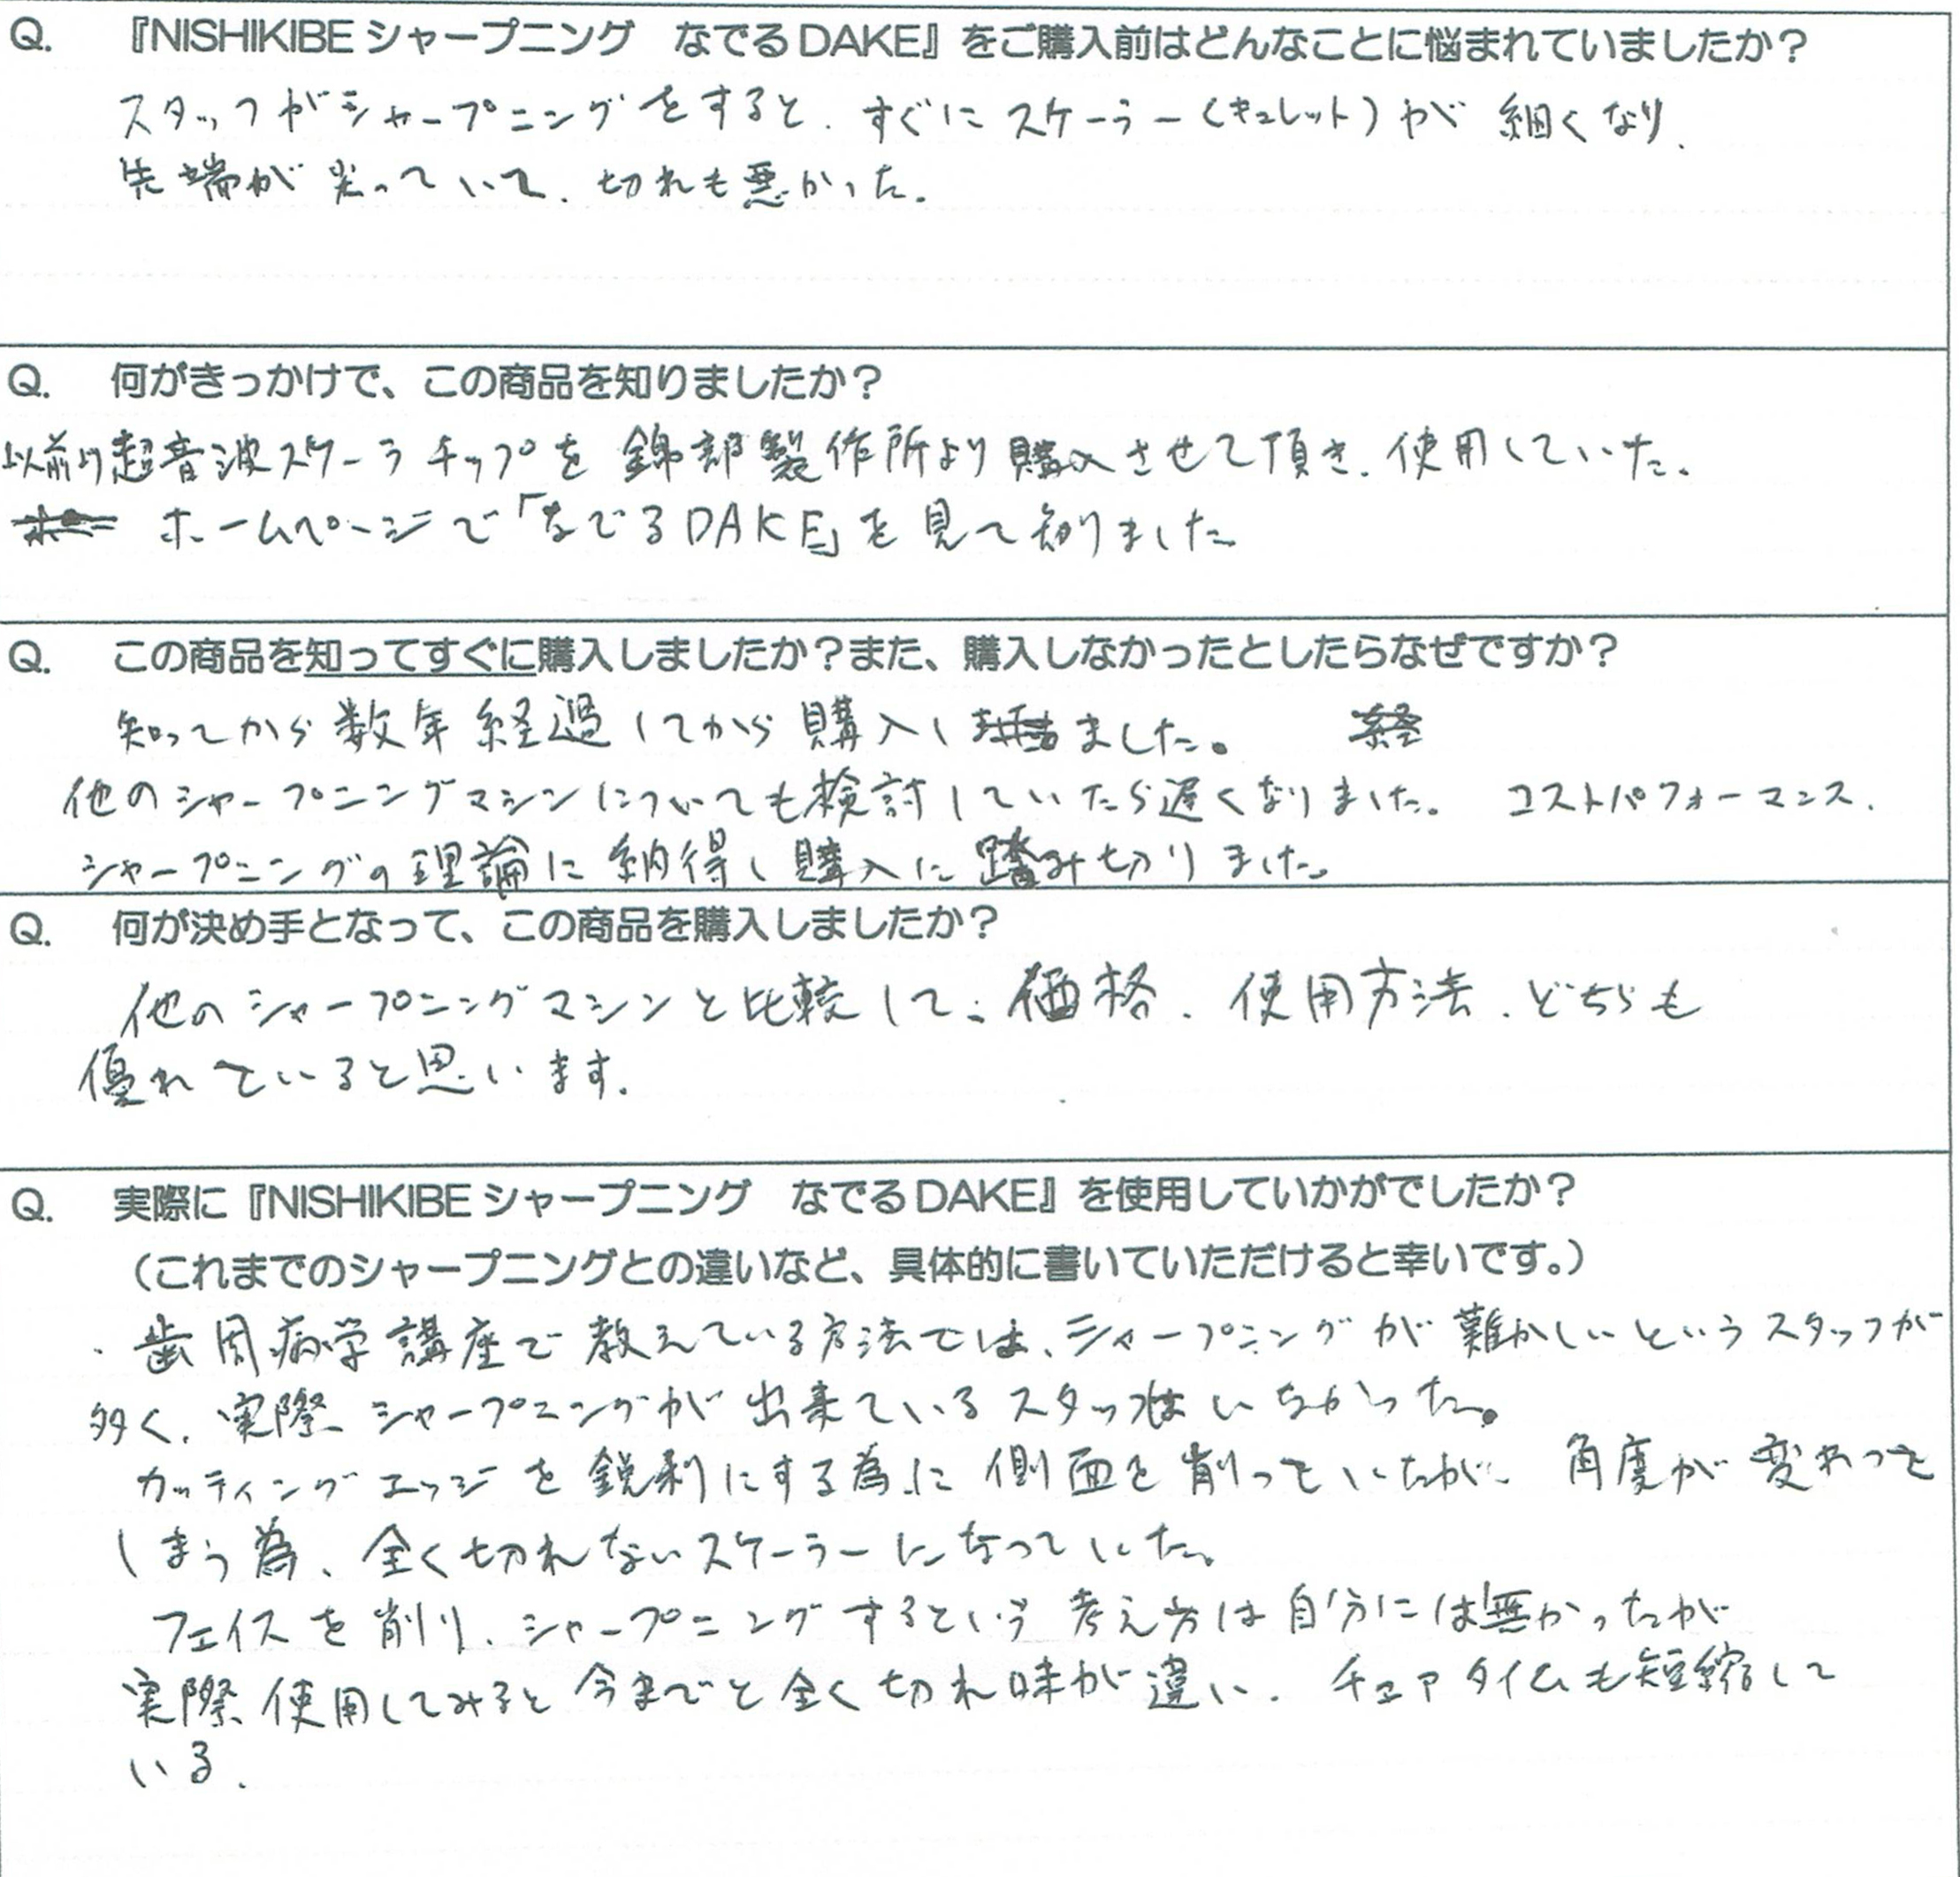 Q. 『NISHIKIBE シャープニング なでる DAKE』をご購入前はどんなことに悩まれていましたか？
スタッフがシャープニングをすると、すぐにスケーラー（キュレット）が 細くなり、
先端が尖っていて、切れも悪かった。
Q. 何がきっかけで、この商品を知りましたか？
以前より超音波スケーラチップを 錦部製作所より購入させて頂き、使用していた。
ホームページで「なでるDAKE」を見て知りました
Q. この商品を知ってすぐに購入しましたか？また、購入しなかったとしたらなぜですか？
知ってから数年経過してから購入しました。
他のシャープニングマシンについても検討していたら遅くなりました。 コストパフォーマンス、
シャープニングの理論に納得し購入に踏み切りました。
Q. 何が決め手となって、この商品を購入しましたか？
他のシャープニングマシンと比較して、価格、使用方法、どちらも
優れていると思います。
Q. 実際に『NISHIKIBE シャープニング なでる DAKE』を使用していかがでしたか？
（これまでのシャープニングとの違いなど、具体的に書いていただけると幸いです。）
・歯周病学講座で教えている方法では、シャープニングが難かしいというスタッフが
多く、実際、シャープニングが出来ているスタッフはいなかった。
カッティングエッジを鋭利にする為に側面を削っていたが、角度が変わって
しまう為、全く切れないスケーラーになっていた。
フェイスを削り、シャープニングするという考え方は自分には無かったが
実際使用してみると今までと全く切れ味が違い、チェアタイムも短縮して
いる。